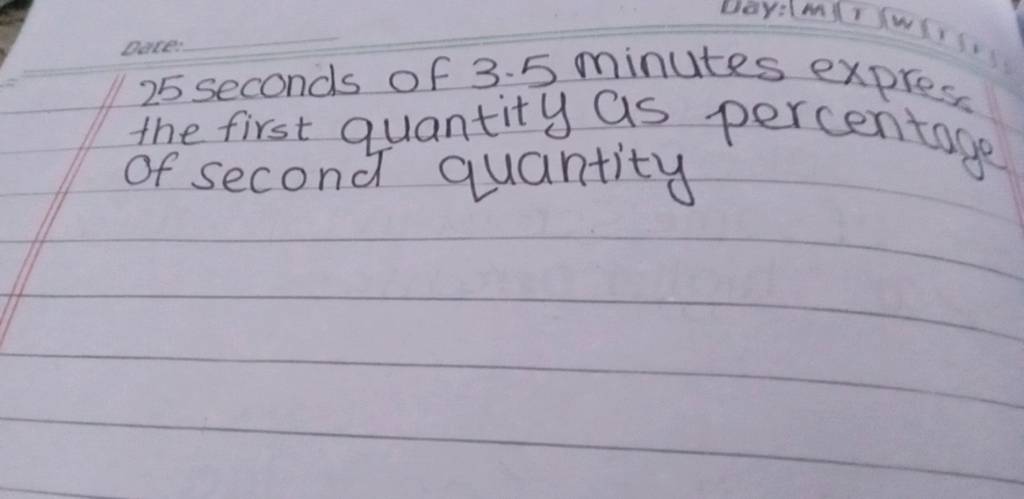 Day: M T W
Date:
25 seconds of 3.5 minutes express
the first quantity as percentage
of second quantity